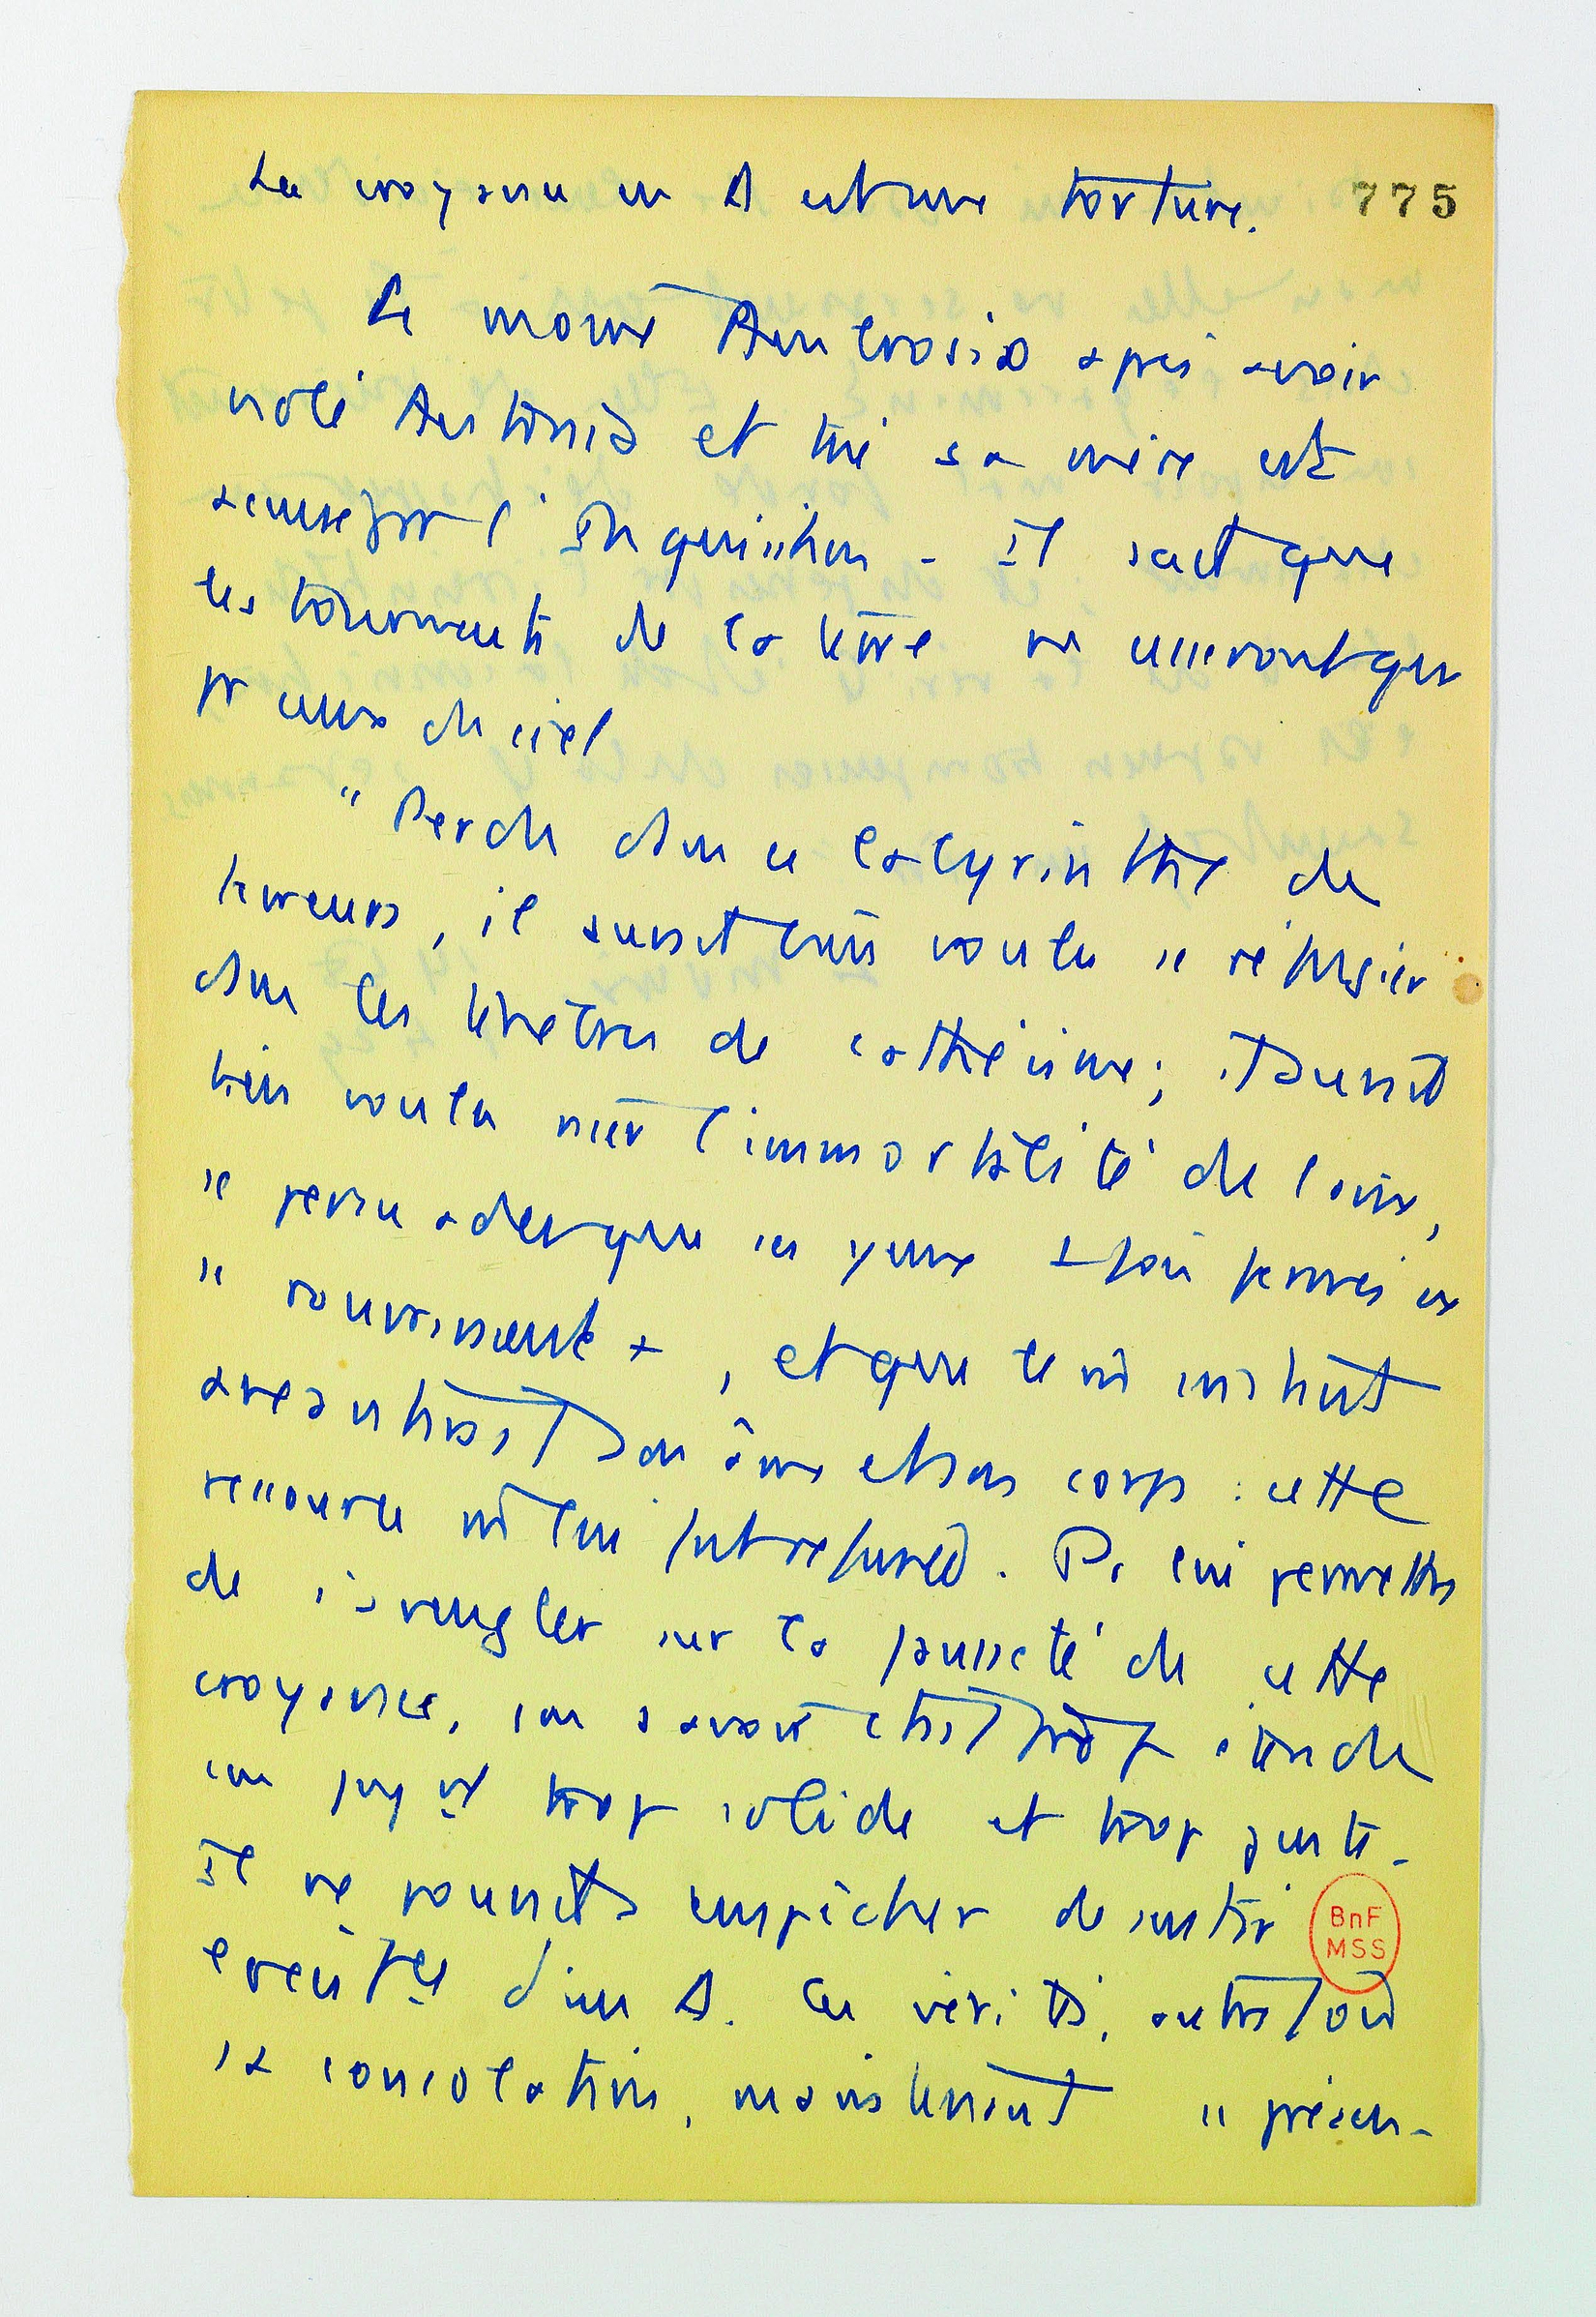 La croyance en Δ est une torture. 775
Le moine Ambrosio après avoir
violé Antonia et tué sa mère est
accusé par l'Inquisition - Il sait que
les tourments de la terre ne cesseront que
pr ceux du ciel
" Perdu dans ce labyrinthe de
terreurs, il aurait bien voulu se réfugier
dans les ténèbres de l'athéisme ; il aurait
bien voulu nier l'immortalité de l'âme,
se persuader que ses yeux 1 fois fermés ne
se rouvriraient +, et que le m̂ instant
anéantirait son âme et son corps : cette
ressource m̂ lui fut refusée. Pr lui permettre
de s'aveugler sur la fausseté de cette
croyance, son savoir était trop étendu
son jugt trop solide et trop juste.
Il ne pouvait s'empêcher de sentir
l'existce d'un Δ. Ces vérités, autrefois
sa consolation, maintenant se présen-
BnF
MSS